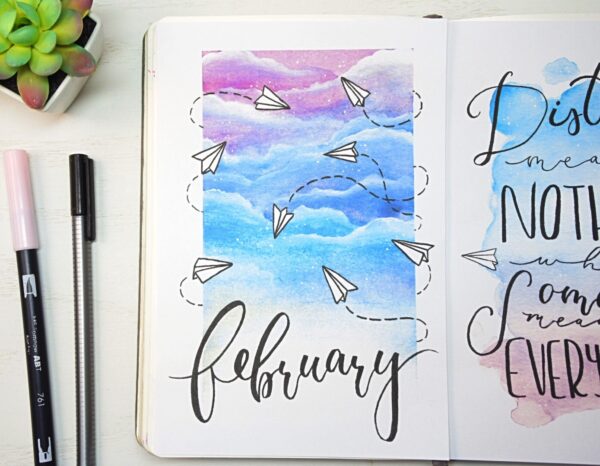 february
Dist
mea
NOTH
wh
Some
mea
EVERY
ABT
761